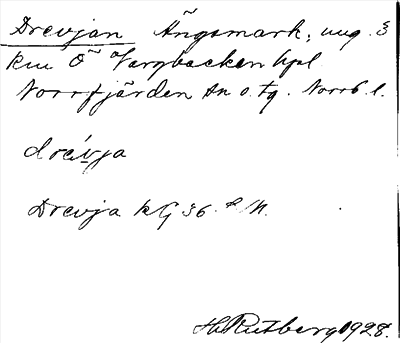 Drevjan Ängsmark, ung. 3
km Ö om Vargbacken hpl
Norrfjärden sn o. tg. Norrb. l.
drévja
Drevja k G 36.
H. Rutberg 1928.